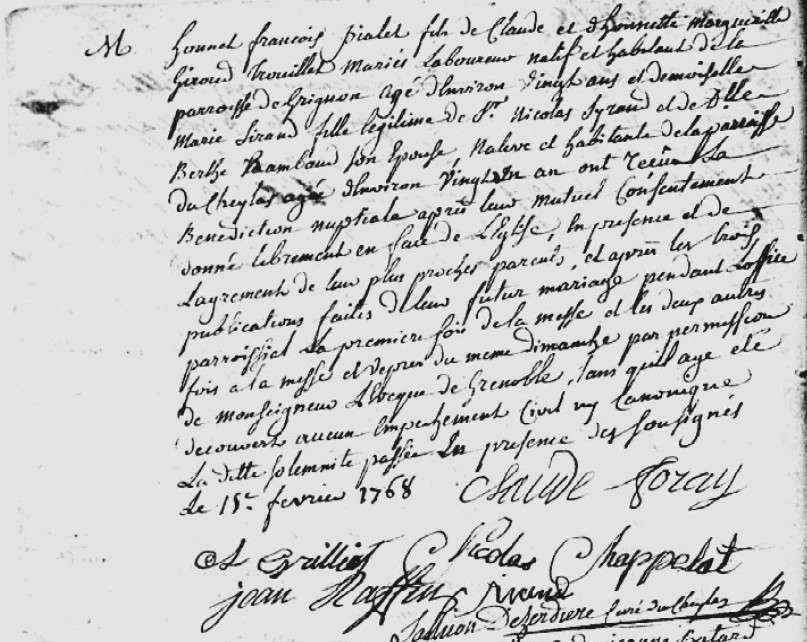 M honnet francois Pialet fils de Claude et d'honnette margueritte
Giroud Trouillet Mariés Laboureur natif et habitant de la
parroisse de Grignon agé d'Environ vingt ans et demoiselle
Marie Siraud fille legitime de Sr. Nicolas Syraud et de Dlle
Berthe Rambaud son Epouse, Native et habitante de la parroisse
du Cheylas agée d'Environ Vingt un an ont recëu La
Benediction nuptiale après leur mutuel Consentement
donné librement en face de L'Eglise, En presence et de
L'agrement de leur plus proches parents, et après les trois
publications faites de leur futur mariage pendant L'office
parroissial La premiere fois de la messe et les deux autres
fois a la messe et vepres du meme dimanche par permission
de monseigneur L'Eveque de Grenoble, sans quil aye eté
decouvert aucun Empechement Civil ny Canonique
La ditte solemnité passée En presence des soussignés
Le 15e. fevrier 1768 Claude foray
Nicolas Chappelat
jean Raffin Siraud
curé du Cheylas